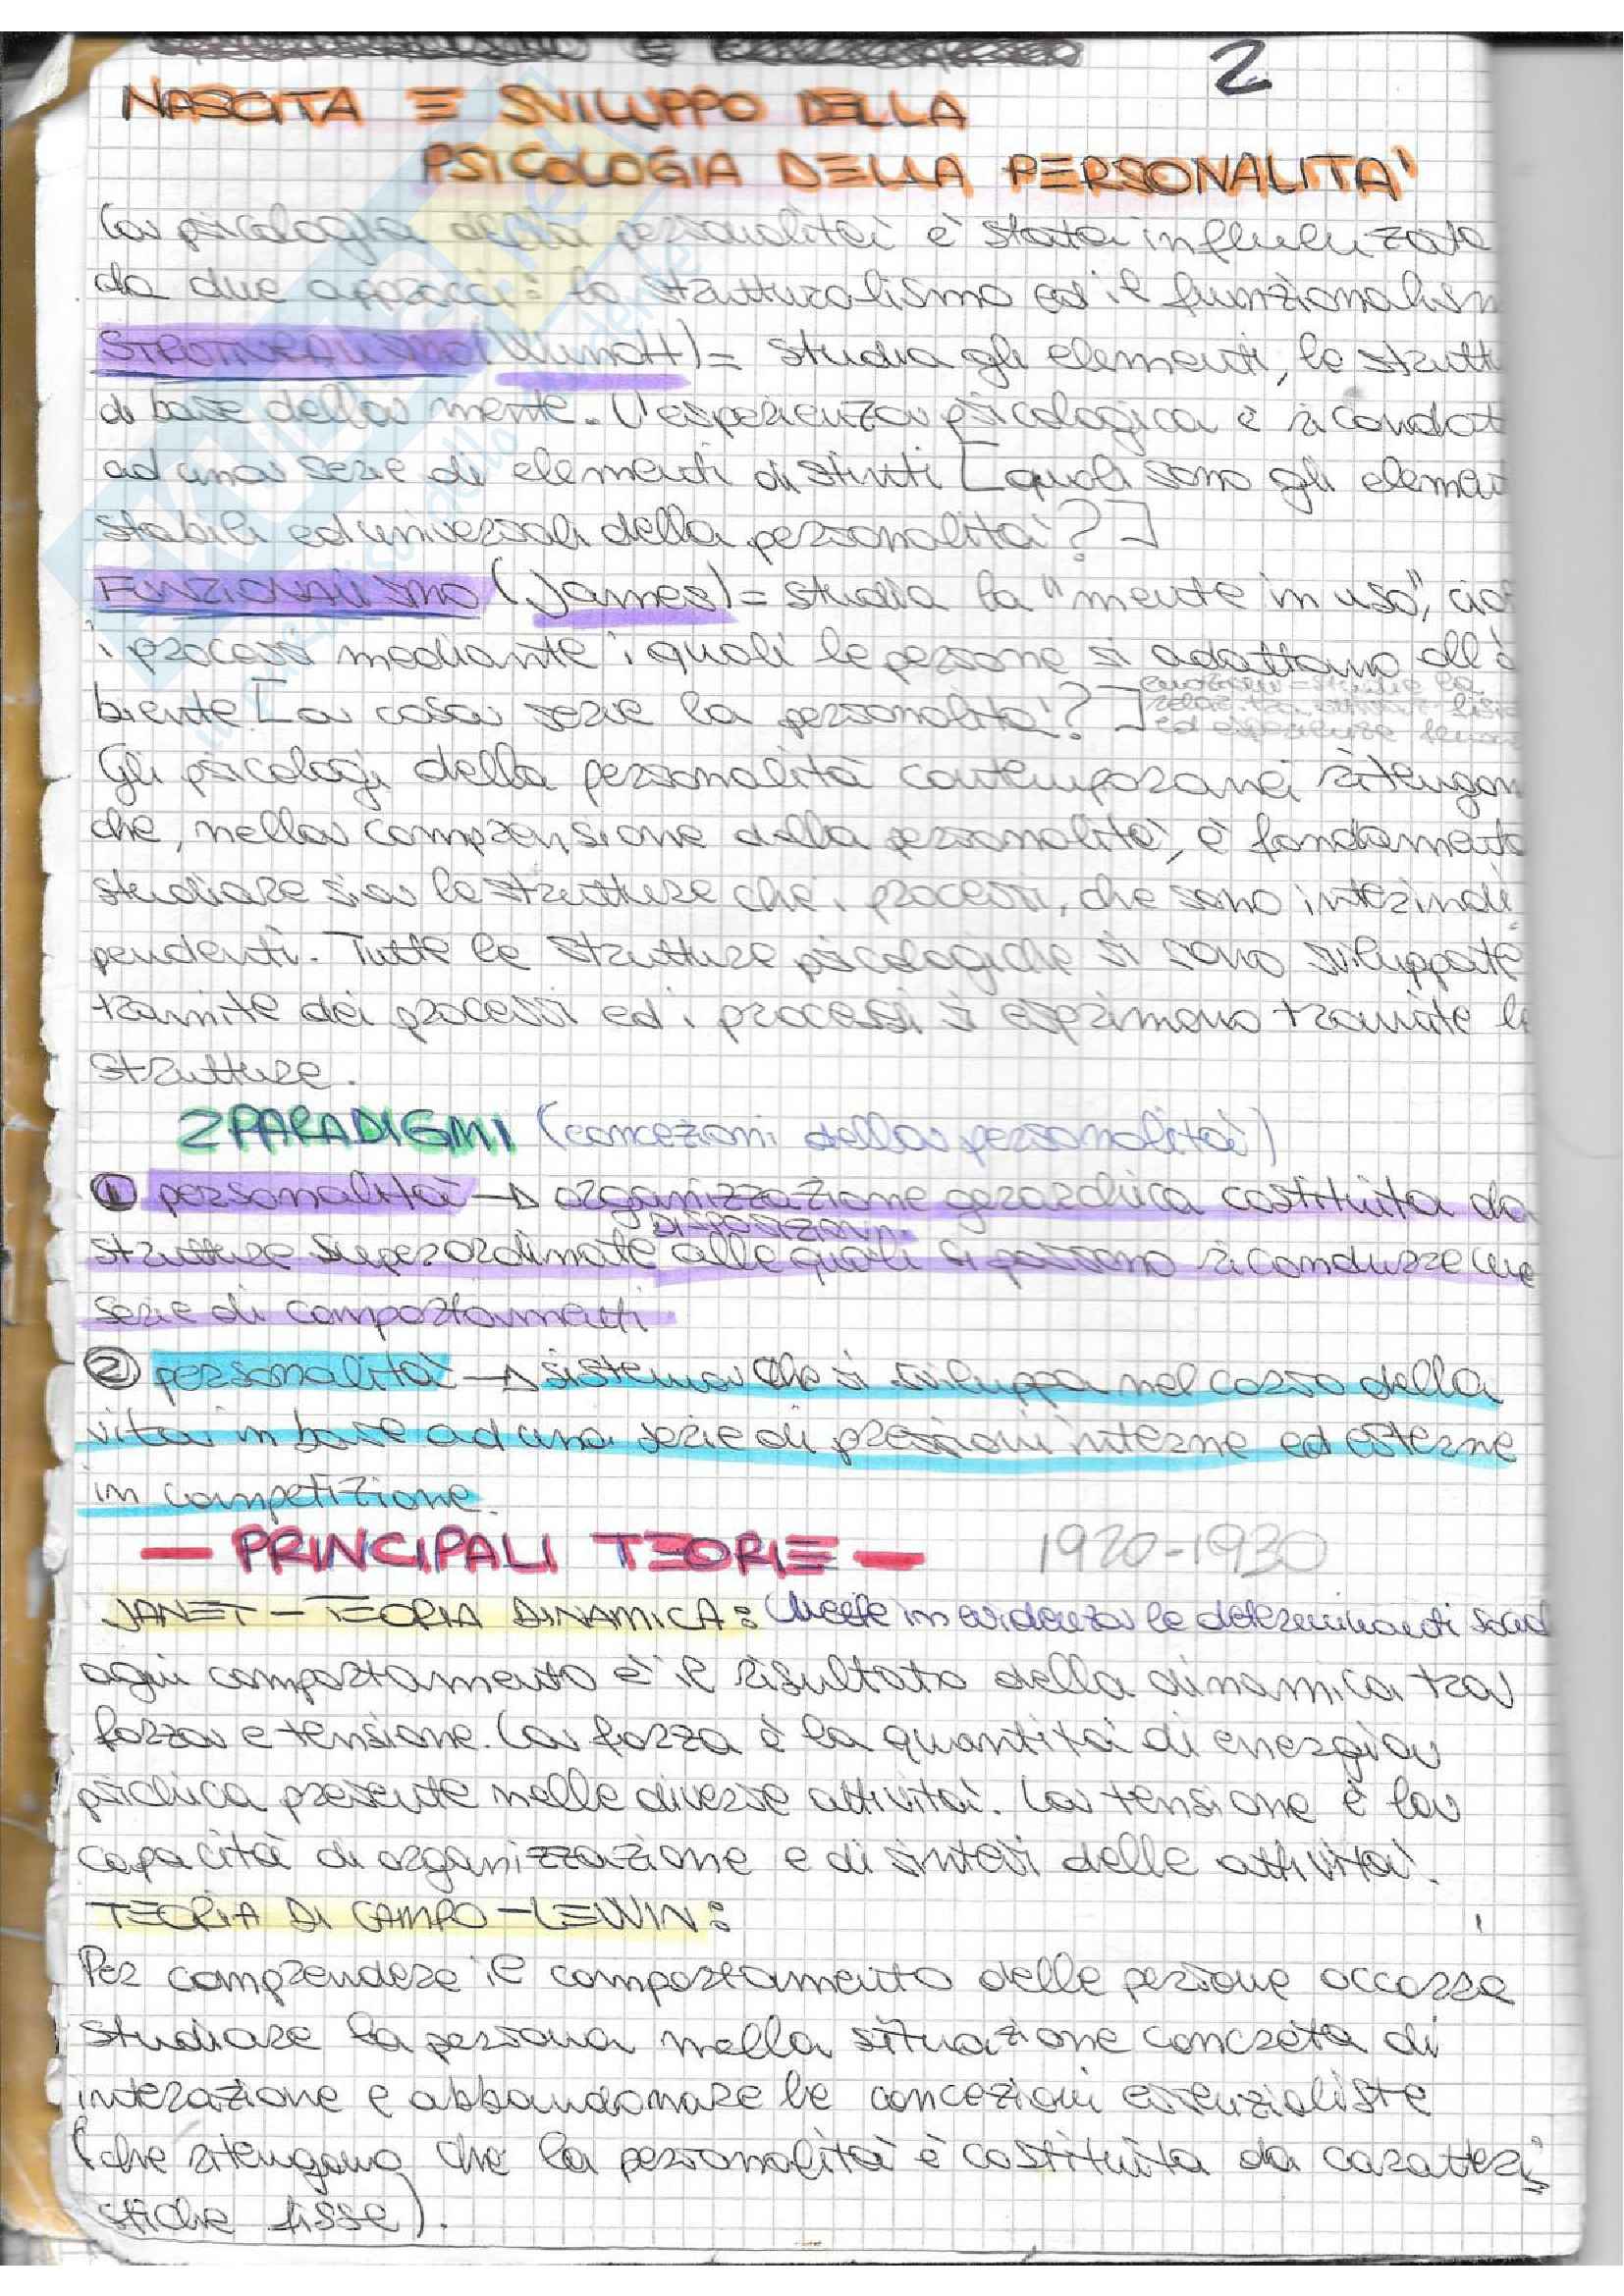 2
NASCITA E SVILUPPO DELLA
PSICOLOGIA DELLA PERSONALITA'
La psicologia della personalità è stata influenzata
da due approcci: lo strutturalismo ed il funzionalism
STRUTTURALISMO (Wundt) = studia gli elementi, le strutt
di base della mente. L'esperienza psicologica è ricondot
ad una serie di elementi distinti [quali sono gli elemen
stabili ed universali della personalità?]
FUNZIONALISMO (James) = studia la "mente in uso", cioè
i processi mediante i quali le persone si adattano all'a
biente [a cosa serve la personalità?]
studia la
relaz. tra
ed esperienze
Gli psicologi della personalità contemporanei ritengon
che, nella comprensione della personalità, è fondament
studiare sia le strutture che i processi, che sono interindi
pendenti. Tutte le strutture psicologiche si sono sviluppate
tramite dei processi ed i processi si esprimono tramite le
strutture.
2 PARADIGMI (concezioni della personalità)
① personalità → organizzazione gerarchica costituita da
DISPOSIZIONI
strutture superordinate alle quali si possono ricondurre une
serie di comportamenti
② personalità → sistema che si sviluppa nel corso della
vita in base ad una serie di pressioni interne ed esterne
in competizione.
— PRINCIPALI TEORIE — 1920-1930
JANET - TEORIA DINAMICA: Mette in evidenza le determinanti social
ogni comportamento è il risultato della dinamica tra
forza e tensione. La forza è la quantità di energia
psichica presente nelle diverse attività. La tensione è la
capacità di organizzazione e di sintesi delle attività.
TEORIA DI CAMPO - LEWIN:
Per comprendere il comportamento delle persone occorre
studiare la persona nella situazione concreta di
interazione e abbandonare le concezioni essenzialiste
(che ritengono che la personalità è costituita da caratteri
stiche fisse).